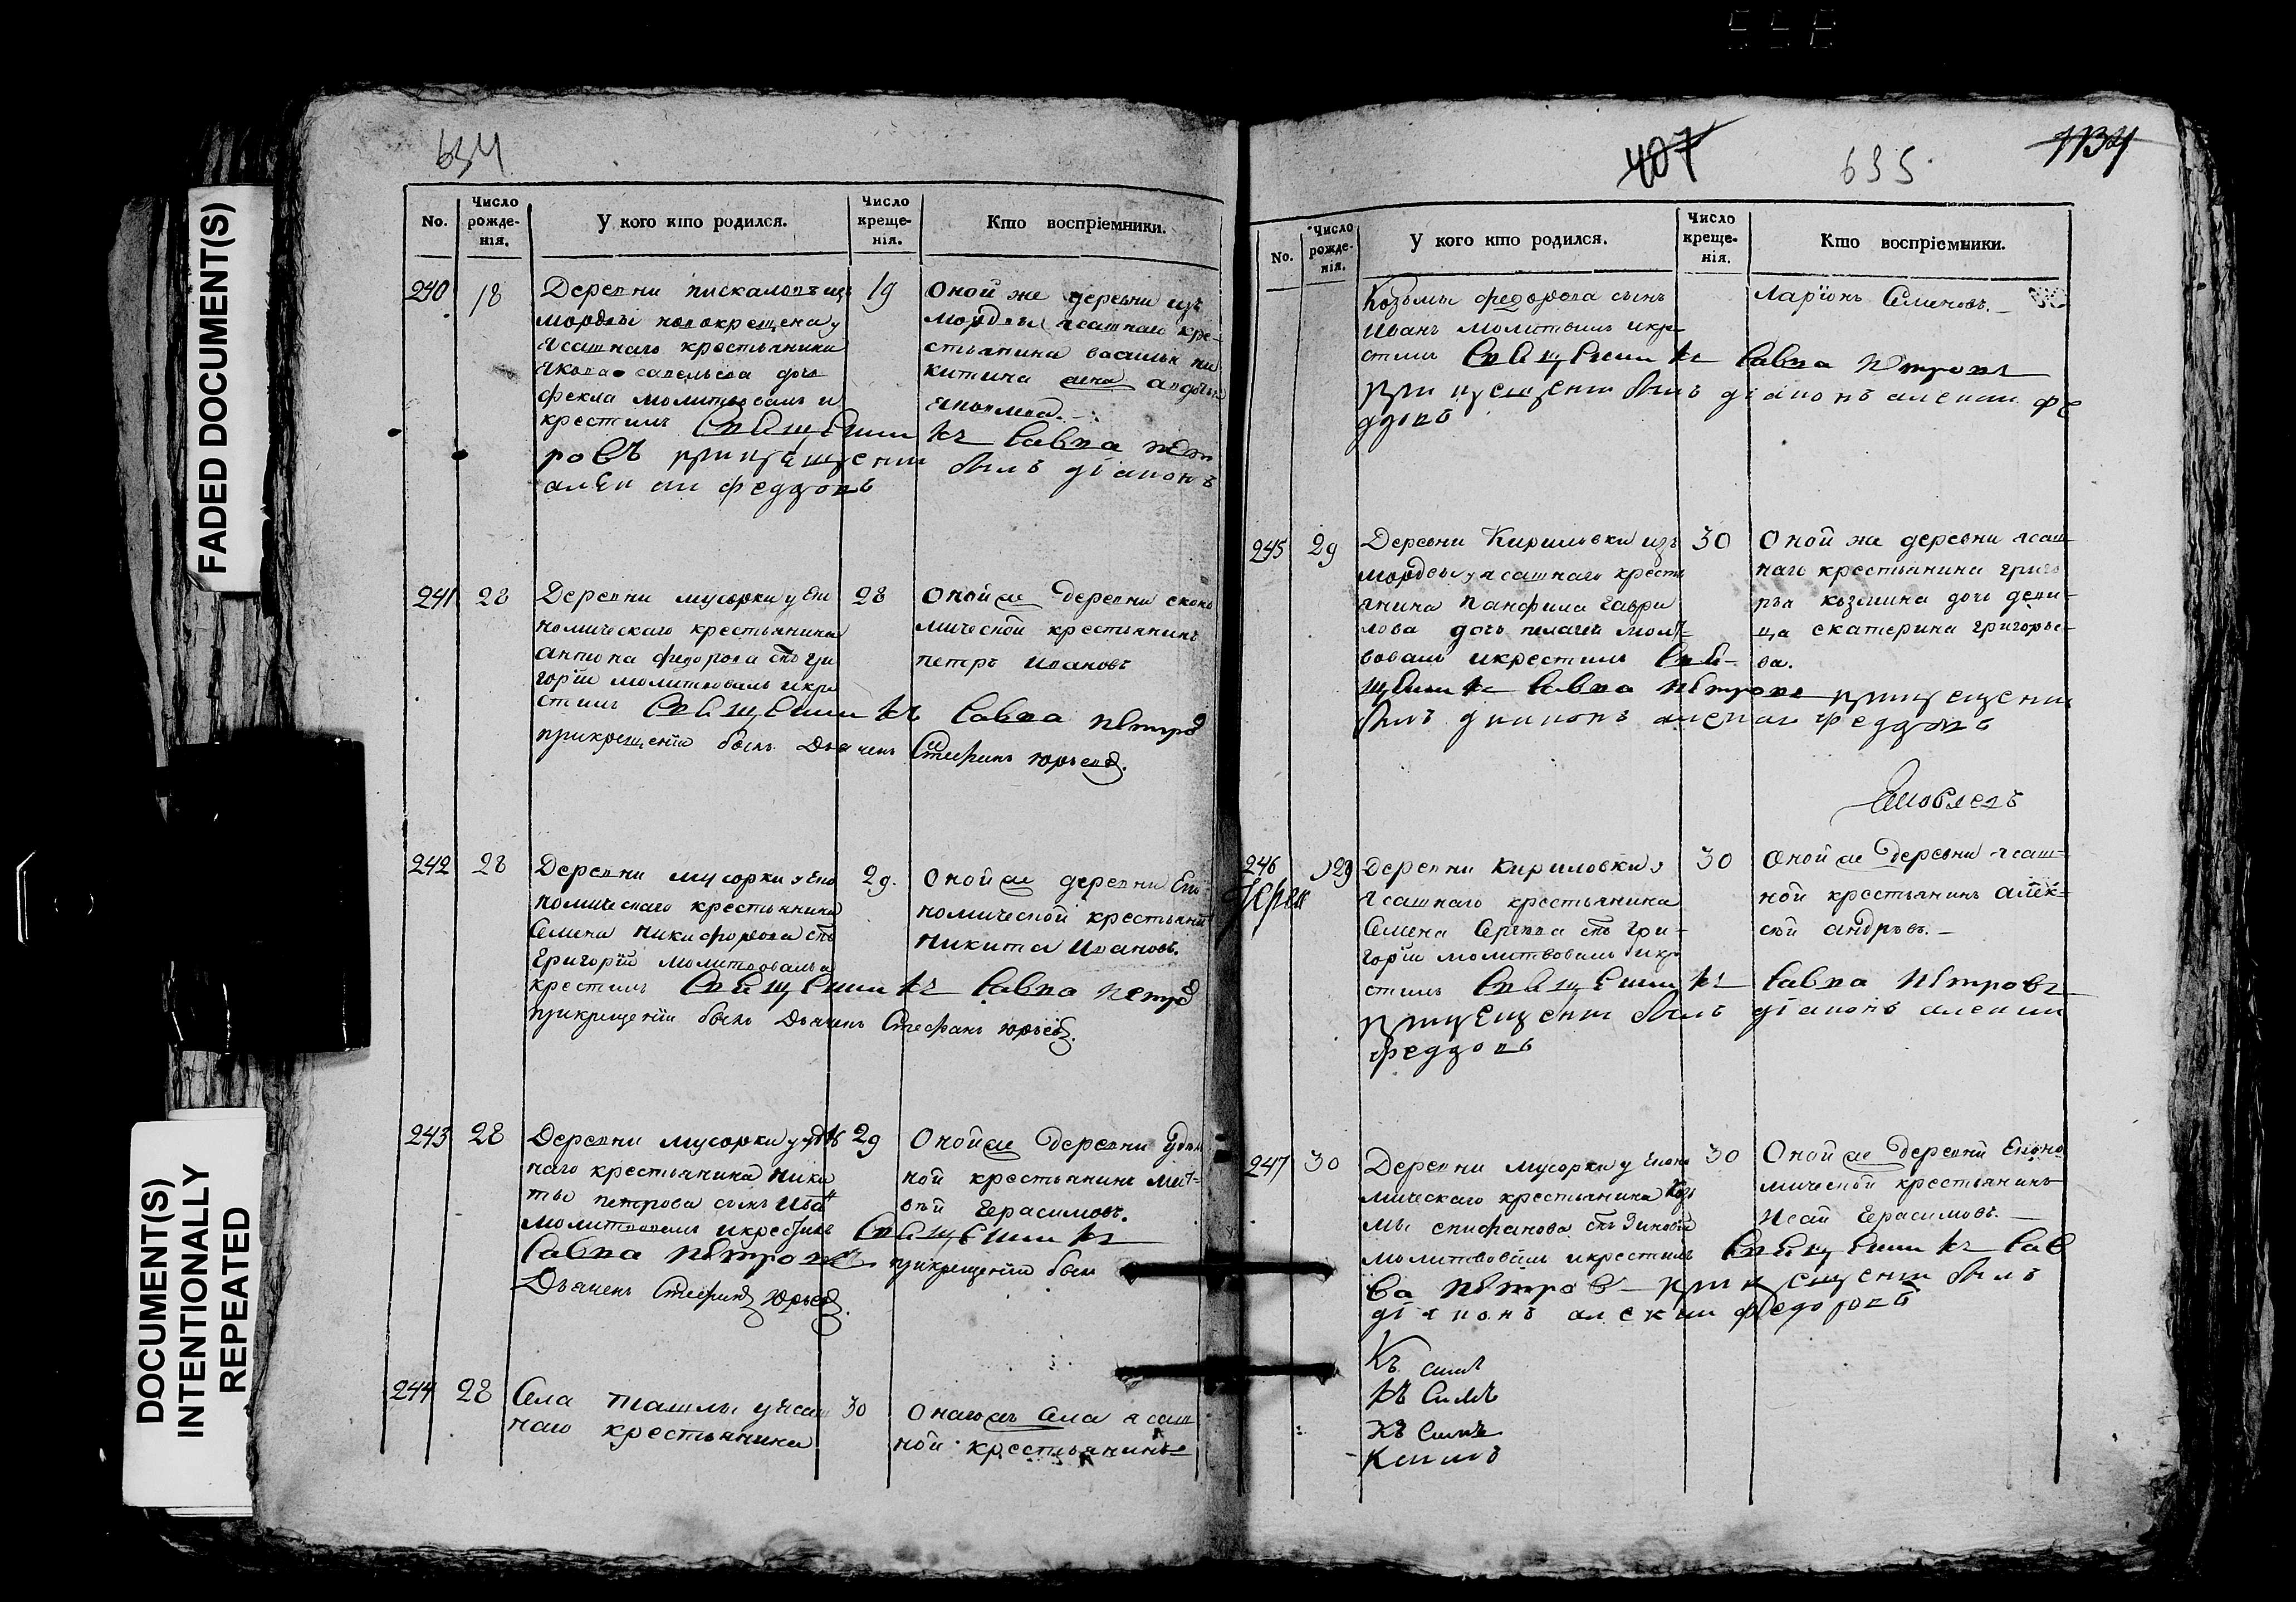 FADED DOCUMENT(S)
DOCUMENT(S)
INTENTIONALLY
REPEATED
634
No.
Число рожде- нія.
У кого кто родился.
Число креще- нія.
Кто воспріемники.
240
18
Деревни
мордвы новокрещена у
ясашнаго крестьянина
Якова савельева дочь
фекла молитвовалъ и
крестилъ Священникъ Савва Пет
ровъ при крещении былъ діаконъ
алексеи феддовъ
19
Оной же деревни изъ
мордвы ясашнаго кре-
стьянина василья ни
китина жена авдотья
241
28
Деревни мусорки у Еко
номическаго крестьянина
антона федорова снъ гри
горïи молитвовалъ икре
стилъ Священникъ Савва Петро
прикрещенïи былъ Дьячекъ Стефанъ юрьевъ.
28
Оной же деревни еконо
мической крестьянинъ
петръ ивановъ
242
28
Деревни мусорки у Еко
номическаго крестьянина
Семена никифорова снъ
Григорïй молитвовалъ и
крестилъ Священникъ Савва Петро
прикрещенïи былъ Дьячекъ Стефанъ юрьевъ.
29.
Оной же деревни Еко-
номической крестьянинъ
Никита Ивановъ.
243
28
Деревни мусорки у удѣль
наго крестьянина Ники
ты петрова сынъ Иванъ
молитвовалъ икрестилъ Священникъ
Савва Петровъ прикрещенïи былъ
Дьячекъ Стефанъ Юрьевъ.
29
Оной же деревни Удѣль
ной крестьянинъ Мат-
вѣй Герасимовъ.
244
28
Села Ташлы у ясаш
наго крестьянина
30
Онагожъ Села ясаш
ной крестьянинъ
407
635
1134
No.
Число рожде- нія.
У кого кто родился.
Число креще- нія.
Кто воспріемники.
Козьмы федорова сынъ
Иванъ молитвовалъ икре
стилъ Священникъ Савва Петровъ
при крещении былъ діаконъ алексеи фе
ддовъ
Ларïонъ Семеновъ.
245
29
Деревни Кириловки изъ
мордвы у ясашнаго кресть
янина Панфила Гаври
лова дочь пелагея молит
вовалъ икрестилъ Свя-
щенникъ Савва Петровъ при крещении
былъ діаконъ алексеи феддовъ
30
Оной же деревни ясаш-
наго крестьянина григо
рья козмина дочь деви-
ца екатерина григорье-
ва.
246
29
Деревни Кириловки у
ясашнаго крестьянина
Семена Сергеева снъ Гри-
горïи молитвовалъ икре
стилъ Священникъ Савва Петровъ
при крещении былъ діаконъ алексеи
феддовъ
30
Оной же Деревни ясаш-
ной крестьянинъ алек-
сѣй андрѣевъ.
247
30
Деревни Мусорки у Еконо
мическаго крестьянина Козь
мы епифанова снъ Зиновей
молитвовалъ икрестилъ Священникъ Сав
ва Петровъ при крещении былъ
діаконъ алексеи федоровъ
30
Оной же Деревни Еконо
мической крестьянинъ
Исай Герасимовъ.
Къ симъ
Къ Симъ
Къ Симъ
Ксимъ